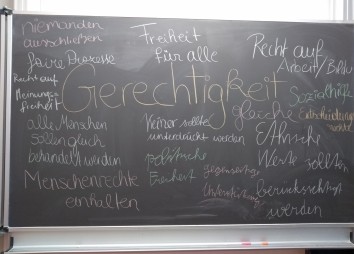 niemanden
ausschließen
faire Prozesse
Recht auf
Meinungs-
freiheit
Freiheit
für alle
Recht auf
Arbeit/Bildu
Gerechtigkeit
Sozialhilfe
gleiche
alle Menschen
sollen gleich
behandelt werden
Menschenrechte
einhalten
Keiner sollte
unterdrückt werden
politische
Freiheit
gegenseitige
Unterstützung
Ethische
Werte sollten
berücksichtigt
werden